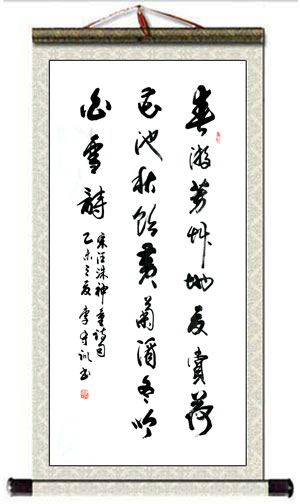 春游芳艸地夏賞荷
花池秋飲黄菊酒冬吟
白雪詩
宋汪洙神童詩句
乙未之夏 李守訓书